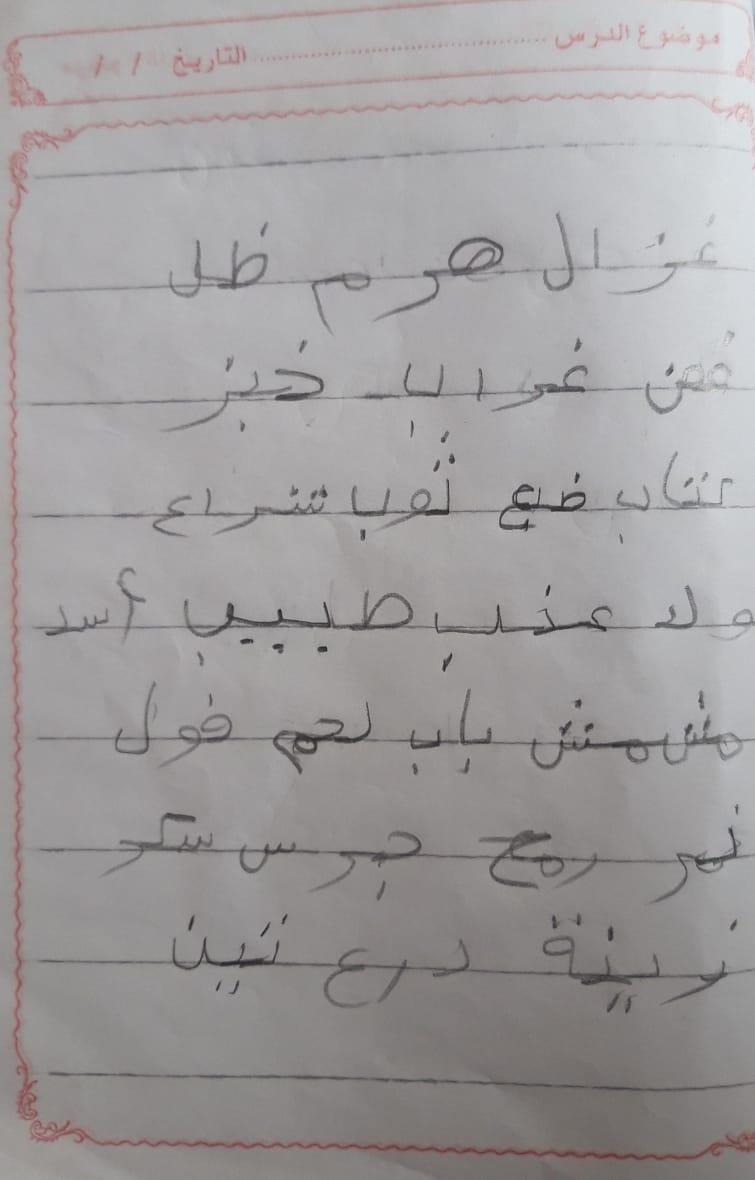 موضوع الدرس ........................ التاريخ / /
غزال هرم ظل
غصن غراب خبز
كتاب ضبع ثوب شراع
ولد عنب طبيب أسد
مشمش باب لحم فول
نمر رمح جرس سكر
زينة درع تين